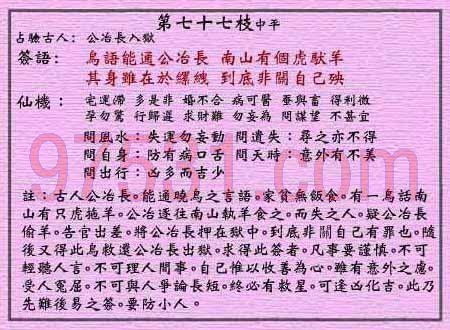 第七十七枝中平
占驗古人：公冶長入獄
簽語：鳥語能通公冶長 南山有個虎馱羊
其身雖在於縲絏 到底非關自己殃
仙機：宅運滯 多是非 婚不合 病可醫 蚕與畜 得利微
孕勿驚 行歸遲 求財難 勿妄為 問謀望 不甚宜
問風水：失運勿妄動 問遺失：尋之亦不得
問自身：防有病口舌 問天時：意外有不美
問出行：凶多而吉少
註：古人公冶長。能通曉鳥之言語。家貧無飯食。有一鳥話南
山有只虎拖羊。公冶遂往南山執羊食之。而失之人。疑公冶長
偷羊。告官出差。將公冶長押在獄中。到底非關自己有罪也。隨
後又得此鳥救還公冶長出獄。求得此簽者。凡事要謹慎。不可
輕聽人言。不可理人閒事。自己惟以收善為心。雖有意外之慮。
受人冤屈。不可與人爭論長短。終必有救星。可逢凶化吉。此乃
先難後易之簽。要防小人。